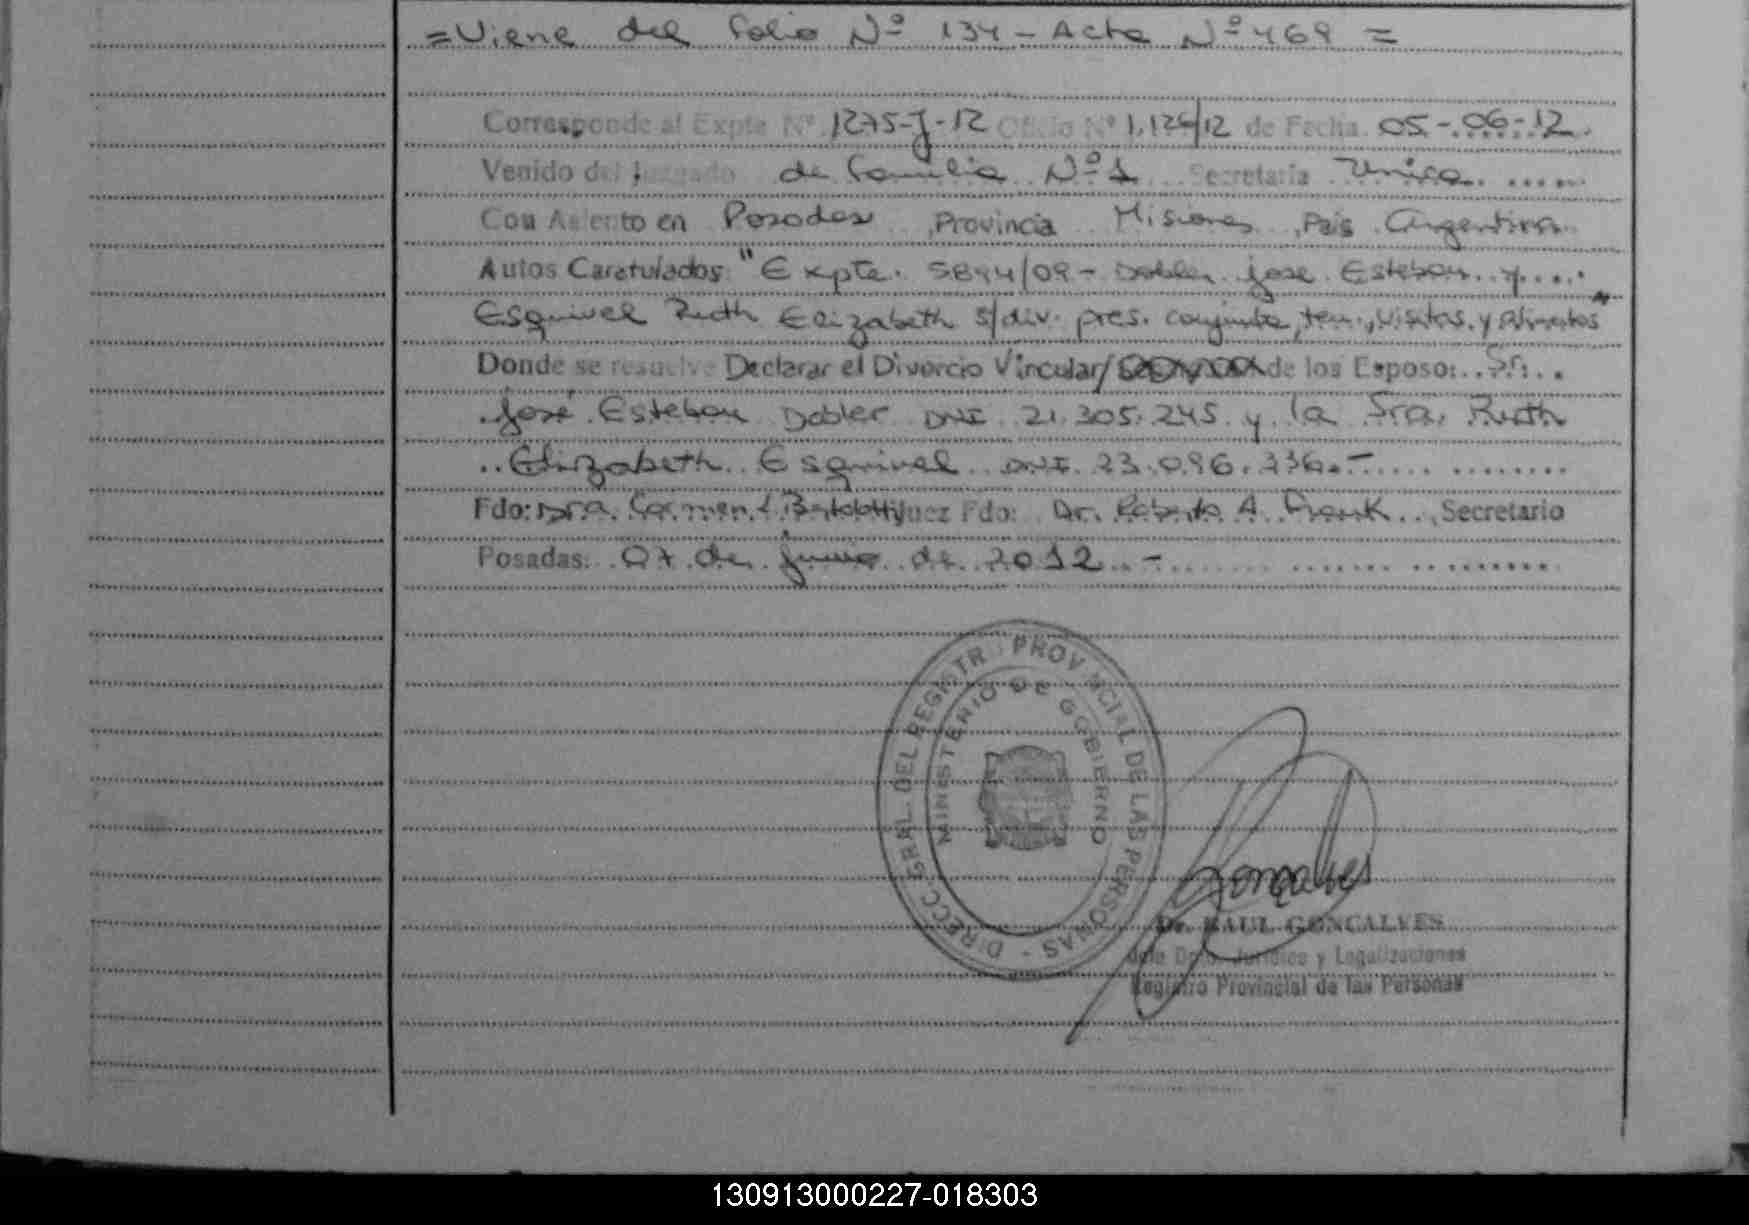 =Viene del folio Nº 134 - Acta Nº 469 =
Corresponde al Expte Nº 1275-J-12 Oficio Nº 1.126/12 de Fecha 05-06-12.
Venido del Juzgado de Familia Nº 1 Secretaria Unica
Con Asiento en Posadas, Provincia Misiones, Pais Argentina
Autos Caratulados: "Expte. 5894/09 - Dobler Jose Esteban y
Esquivel Ruth Elizabeth s/div. pres. conjunta, ten., visitas y alimentos"
Donde se resuelve Declarar el Divorcio Vincular/ de los Esposo: Sr.
José Esteban Dobler DNI 21.305.245 y la Sra. Ruth
Elizabeth Esquivel DNI 23.096.336.-
Fdo: Dra. Carmen Juez Fdo: Dr. Roberto A. Frank, Secretario
Posadas: 07 de junio de 2012.-
DIRECC. GRAL. DEL REGISTR PROVINCIAL DE LAS PERSONAS -
MINISTERIO DE GOBIERNO
Gonçalves
Dr. RAUL GONCALVES
Jefe Dpto. Jurídico y Legalizaciones
Registro Provincial de las Personas
130913000227-018303